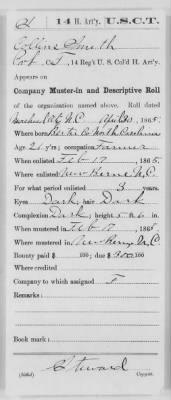 S | 14 H. Art'y. | U.S.C.T.
Smith
Cor, Co. I, 14 Reg't U.S. Col'd H. Art'y.
Appears on
Company Muster-in and Descriptive Roll
of the organization named above. Roll dated
Morehead City N.C. Apr 30, 1865.
Where born Bertie Co North Carolina
Age 21 y'rs; occupation Farmer
When enlisted Feb 17, 1865.
Where enlisted New Berne N.C.
For what period enlisted 3 years.
Eyes Dark; hair Dark
Complexion Dark; height 5 ft. 6 in.
When mustered in Feb 17, 1865
Where mustered in New Berne N.C.
Bounty paid $ /100; due $ 300 /100
Where credited
Company to which assigned
Remarks:
Book mark:
Steward
Copyist.